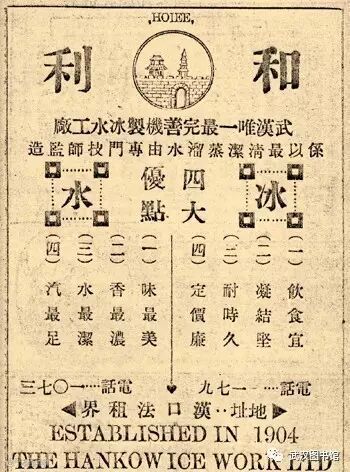 HOIEE
和利
武漢唯一最完善機製冰水工廠
係以最清潔蒸溜水由專門技師監造
冰
四大
優點
水
(一)飲食宜
(二)凝結堅
(三)耐時久
(四)定價廉
(一)味最美
(二)香最濃
(三)水最潔
(四)汽最足
電話…一七九
電話…一〇七三
地址:漢口法租界
ESTABLISHED IN 1904
THE HANKOW ICE WORK LTD
武汉图书馆